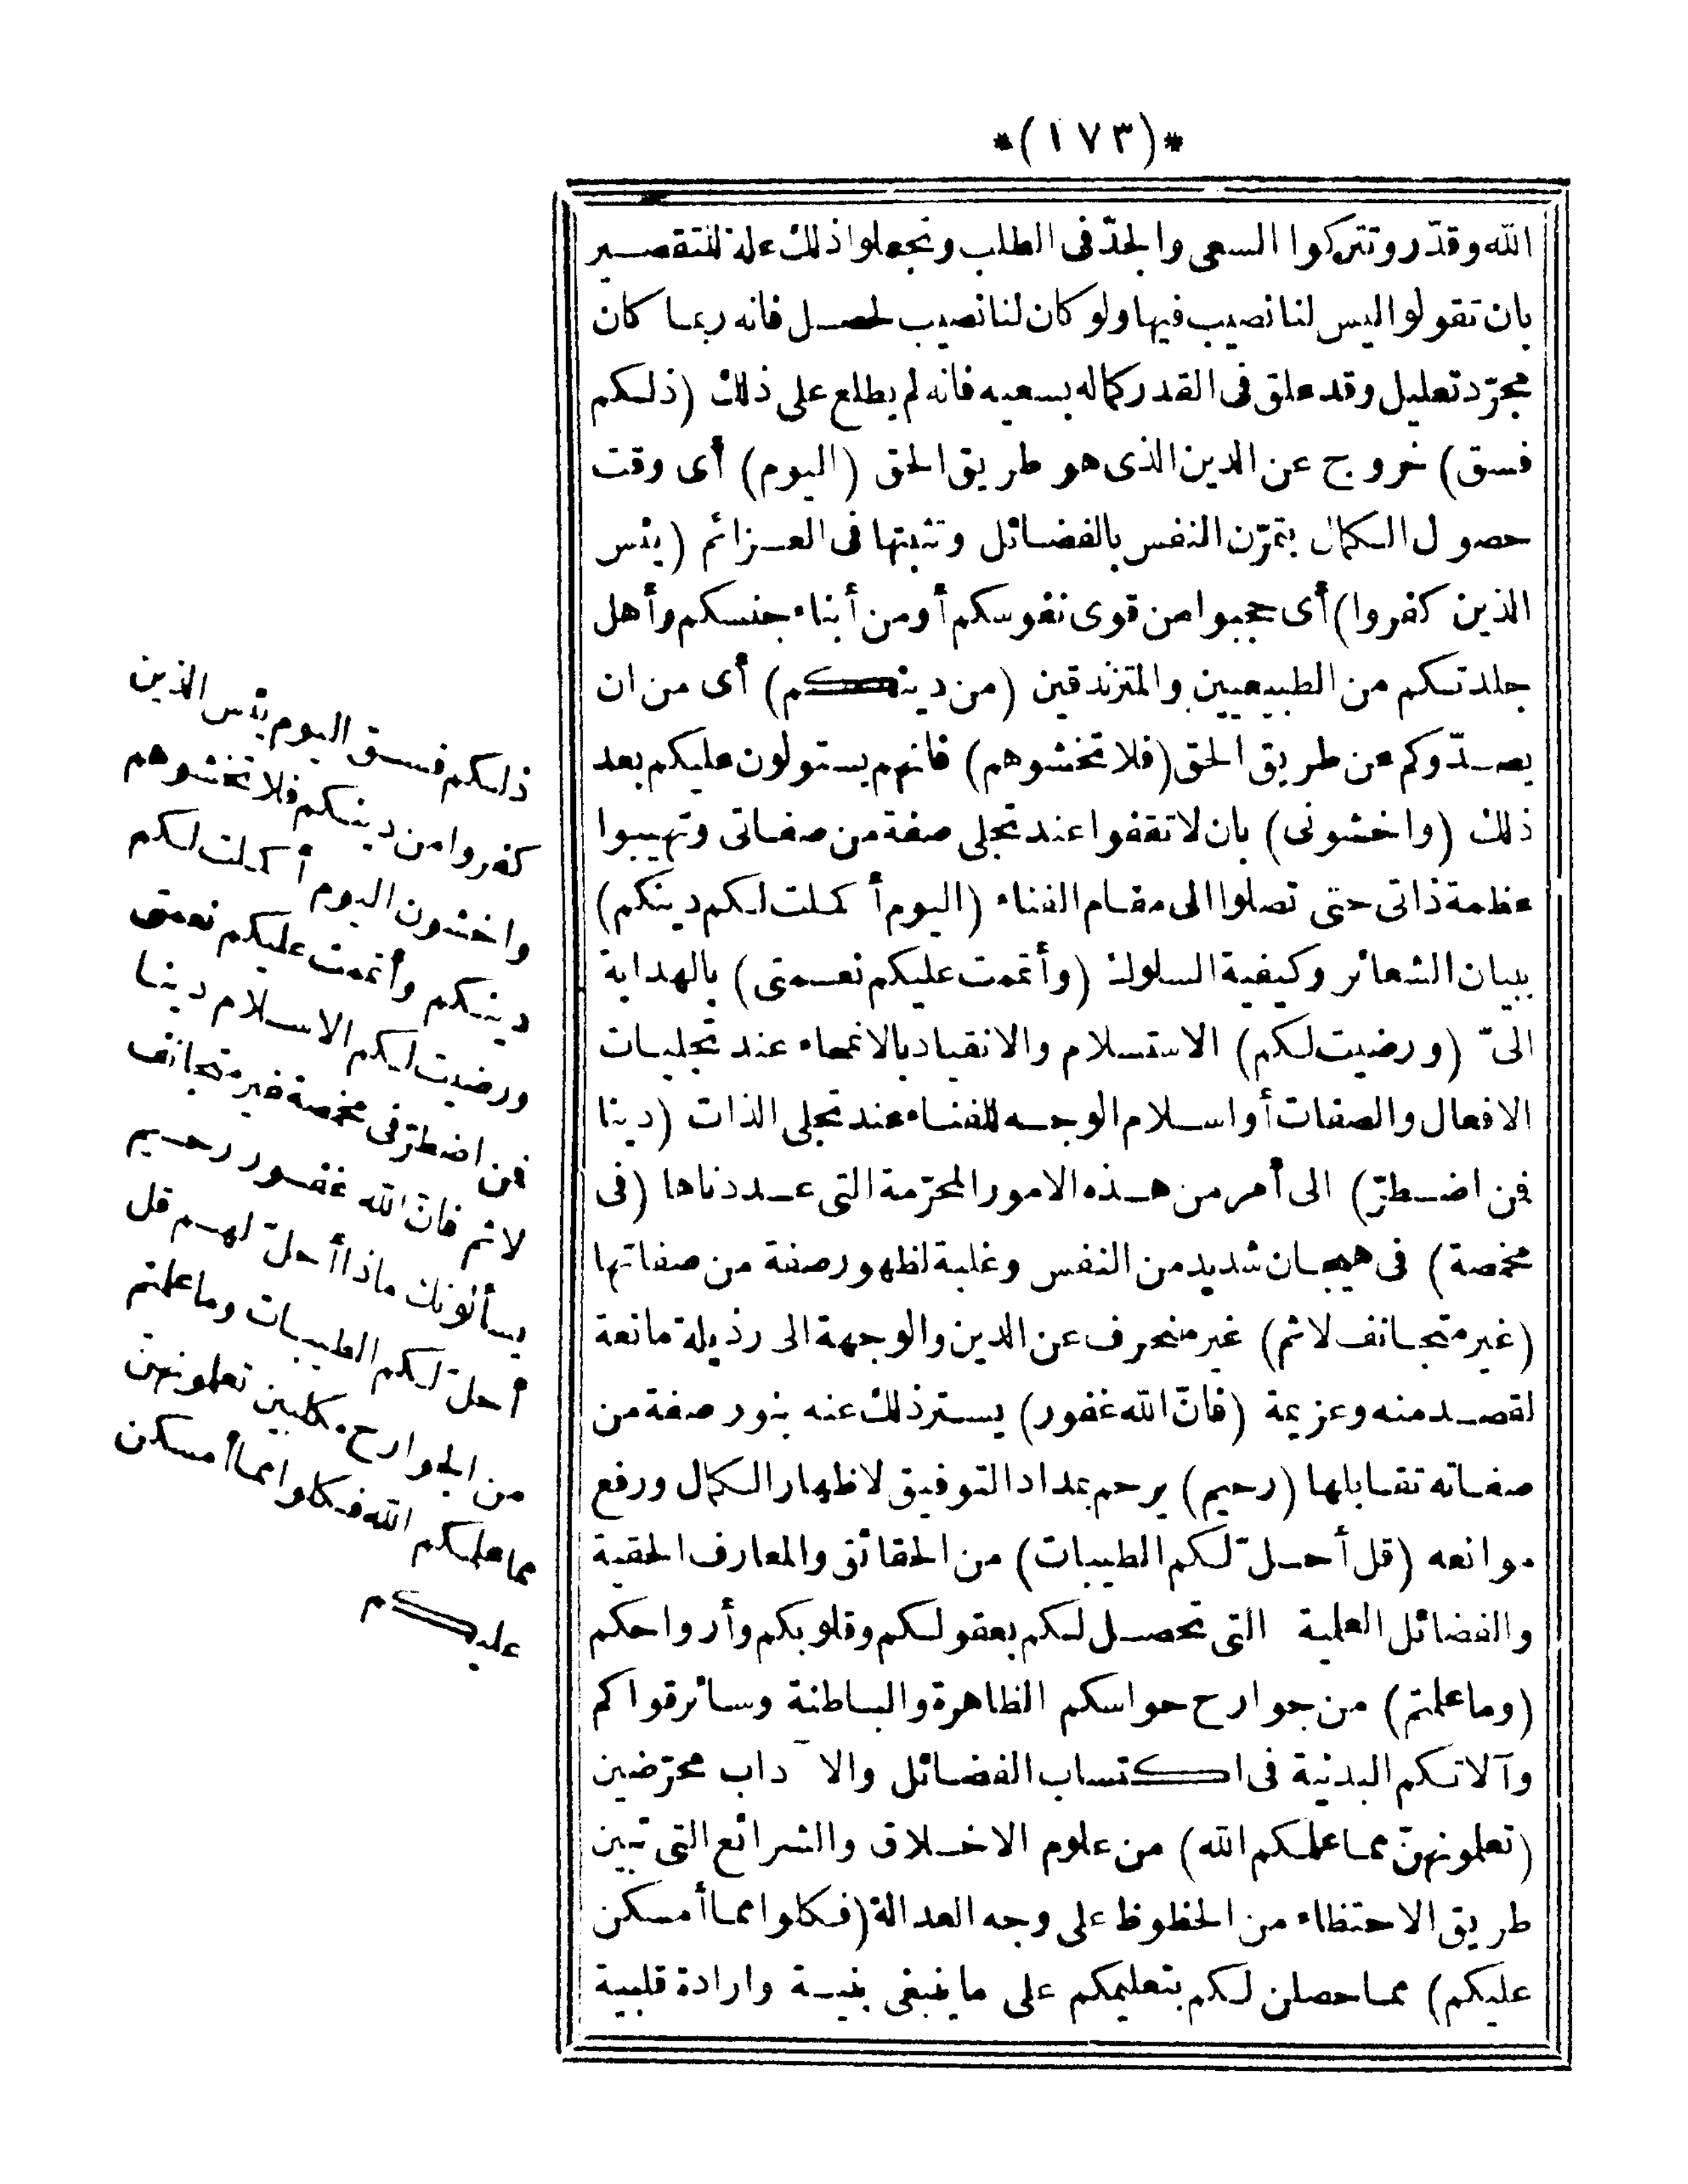 *(١٧٣)*
الله وقدّر وتتركوا السعى والجدّ فى الطلب وتجعلوا ذلك علة للتقصير
بان تقولوا ليس لنا نصيب فيها ولو كان لنا نصيب لحصل فانه ربما كان
مجرّد تعليل وقد علق فى القدر كماله بسعيه فانه لم يطلع على ذلك (ذلكم
فسق) خروج عن الدين الذى هو طريق الحق (اليوم) أى وقت
حصول الكمال بتمرّن النفس بالفضائل وتثبتها فى العزائم (يئس
الذين كفروا) أى حجبوا من قوى نفوسكم أو من أبناء جنسكم وأهل
جلدتكم من الطبيعيين والمتزندقين (من دينكم) أى من ان
يصدّوكم عن طريق الحق (فلا تخشوهم) فانهم يستولون عليكم بعد
ذلك (واخشونى) بان لا تقفوا عند تجلى صفة من صفاتى وتهيبوا
عظمة ذاتى حتى تصلوا الى مقام الفناء (اليوم أكملت لكم دينكم)
ببيان الشعائر وكيفية السلوك (وأتممت عليكم نعمتى) بالهداية
الىّ (ورضيت لكم) الاستسلام والانقياد بالانمحاء عند تجليات
الافعال والصفات أو اسلام الوجه للفناء عند تجلى الذات (دينا
فمن اضطرّ) الى أمر من هذه الامور المحرّمة التى عددناها (فى
مخمصة) فى هيجان شديد من النفس وغلبة لظهور صفة من صفاتها
(غير متجانف لاثم) غير منحرف عن الدين والوجهة الى رذيلة مانعة
لقصد منه وعزيمة (فانّ الله غفور) يستر ذلك عنه بنور صفة من
صفاته تقابلها (رحيم) يرحم بمداد التوفيق لاظهار الكمال ورفع
موانعه (قل أحلّ لكم الطيبات) من الحقائق والمعارف الحقية
والفضائل العلمية التى تحصل لكم بعقولكم وقلوبكم وأرواحكم
(وما علمتم) من جوارح حواسكم الظاهرة والباطنة وسائر قواكم
وآلاتكم البدنية فى اكتساب الفضائل والآداب محرّضين
(تعلمونهنّ مما علمكم الله) من علوم الاخلاق والشرائع التى تبين
طريق الاحتظاء من الحظوظ على وجه العدالة (فكلوا مما أمسكن
عليكم) مما حصلن لكم بتعليمكم على ما ينبغى بنية وارادة قلبية
ذلكم فسق اليوم يئس الذين
كفروا من دينكم فلا تخشوهم
واخشون اليوم أكملت لكم
دينكم وأتممت عليكم نعمتى
ورضيت لكم الاسلام دينا
فمن اضطرّ فى مخمصة غير متجانف
لاثم فانّ الله غفور رحيم
يسألونك ماذا أحلّ لهم قل
أحلّ لكم الطيبات وما علمتم
من الجوارح مكلبين تعلمونهنّ
مما علمكم الله فكلوا مما أمسكن
عليكم